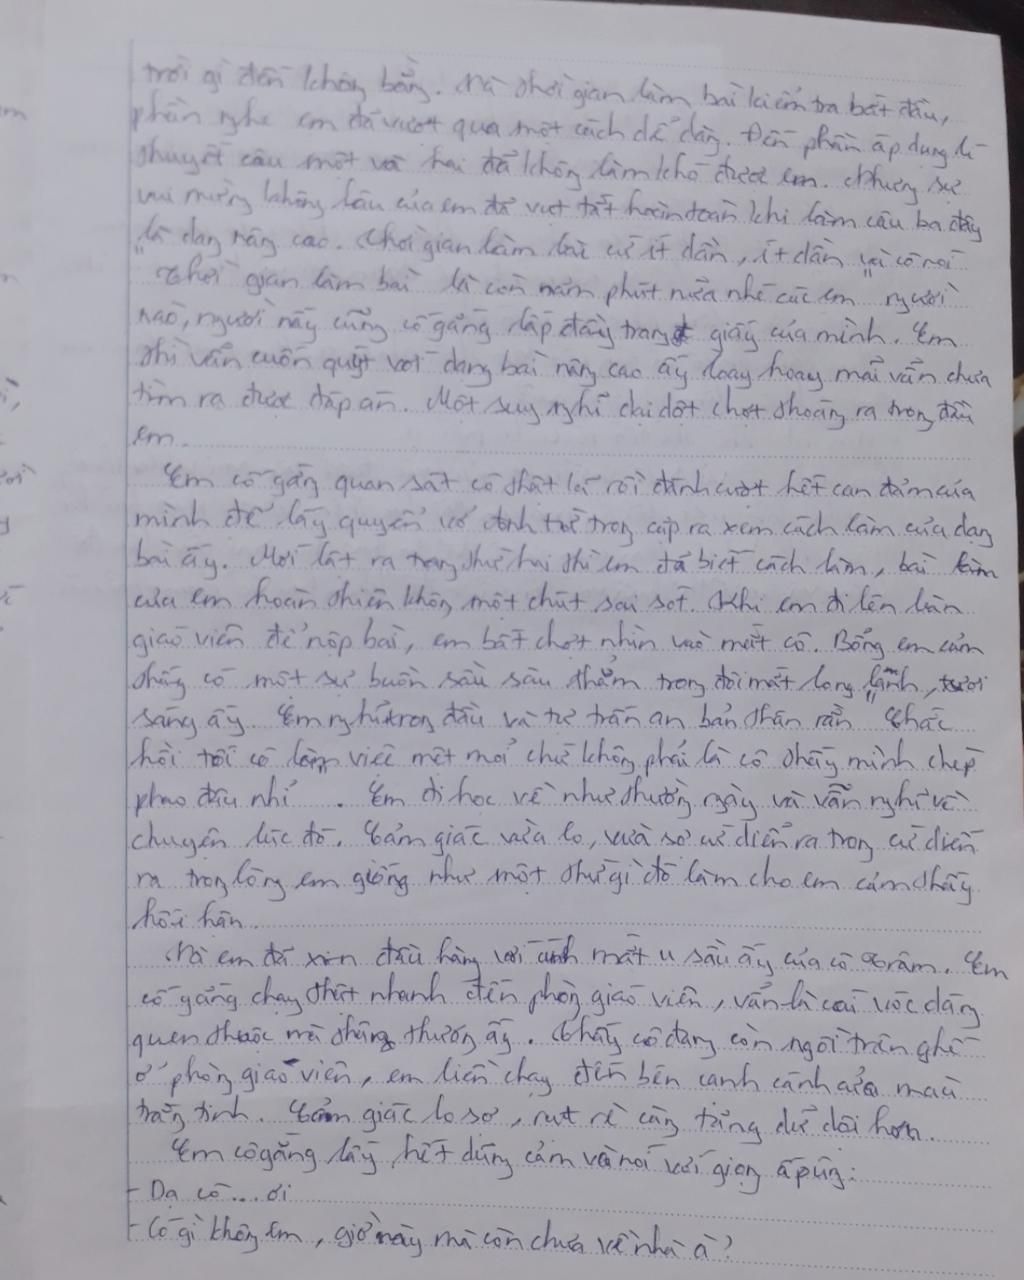 trời gì đến không bằng. Mà thời gian làm bài kiểm tra bắt đầu,
phần nghe em đã vượt qua một cách dễ dàng. Đến phần áp dụng lí
thuyết câu một và hai đã không làm khó được em. Nhưng sự
vui mừng không lâu của em đã vụt tắt hoàn toàn khi làm câu ba đây
là dạng nâng cao. Thời gian làm bài cứ ít dần, ít dần và cô nói
"Thời gian làm bài là còn năm phút nữa nhé các em" người
nào, người nấy cũng cố gắng lấp đầy trang giấy của mình. Em
thì vẫn cuốn quýt với dạng bài nâng cao ấy loay hoay mãi vẫn chưa
tìm ra được đáp án. Một suy nghĩ dại dột chợt thoáng ra trong đầu
em.
Em cố gắng quan sát cô thật kĩ rồi đánh cượt hết can đảm của
mình để lấy quyển vở từ trong cặp ra xem cách làm của dạng
bài ấy. Mới lật ra trang thứ hai thì em đã biết cách làm, bài làm
của em hoàn thiện không một chút sai sót. Khi em đi lên bàn
giáo viên để nộp bài, em bất chợt nhìn vào mắt cô. Bỗng em cảm
thấy có một sự buồn sầu sâu thẳm trong đôi mắt long lanh, tươi
sáng ấy. Em nghĩ trong đầu và tự trấn an bản thân rằn "Chắc
hồi tối cô làm việc mệt mỏi chứ không phải là cô thấy mình chép
phao đâu nhỉ". Em đi học về như thường ngày và vẫn nghĩ về
chuyện lúc đó. Cảm giác vừa lo, vừa sợ cứ diễn ra trong cứ diễn
ra trong lòng em giống như một thứ gì đó làm cho em cảm thấy
hối hận.
Mà em đã xin đầu hàng với ánh mắt u sầu ấy của cô Trâm. Em
cố gắng chạy thật nhanh đến phòng giáo viên, vẫn là cái vóc dáng
quen thuộc mà thân thương ấy. Thấy cô đang còn ngồi trên ghế
ở phòng giáo viên, em liền chạy đến bên cạnh cánh cửa màu
trắng tinh. Cảm giác lo sợ, rụt rè càng tăng dữ dội hơn.
Em cố gắng lấy hết dũng cảm và nói với giọng ấp úng:
- Dạ cô...ơi
- Có gì không em, giờ này mà còn chưa về nhà à?